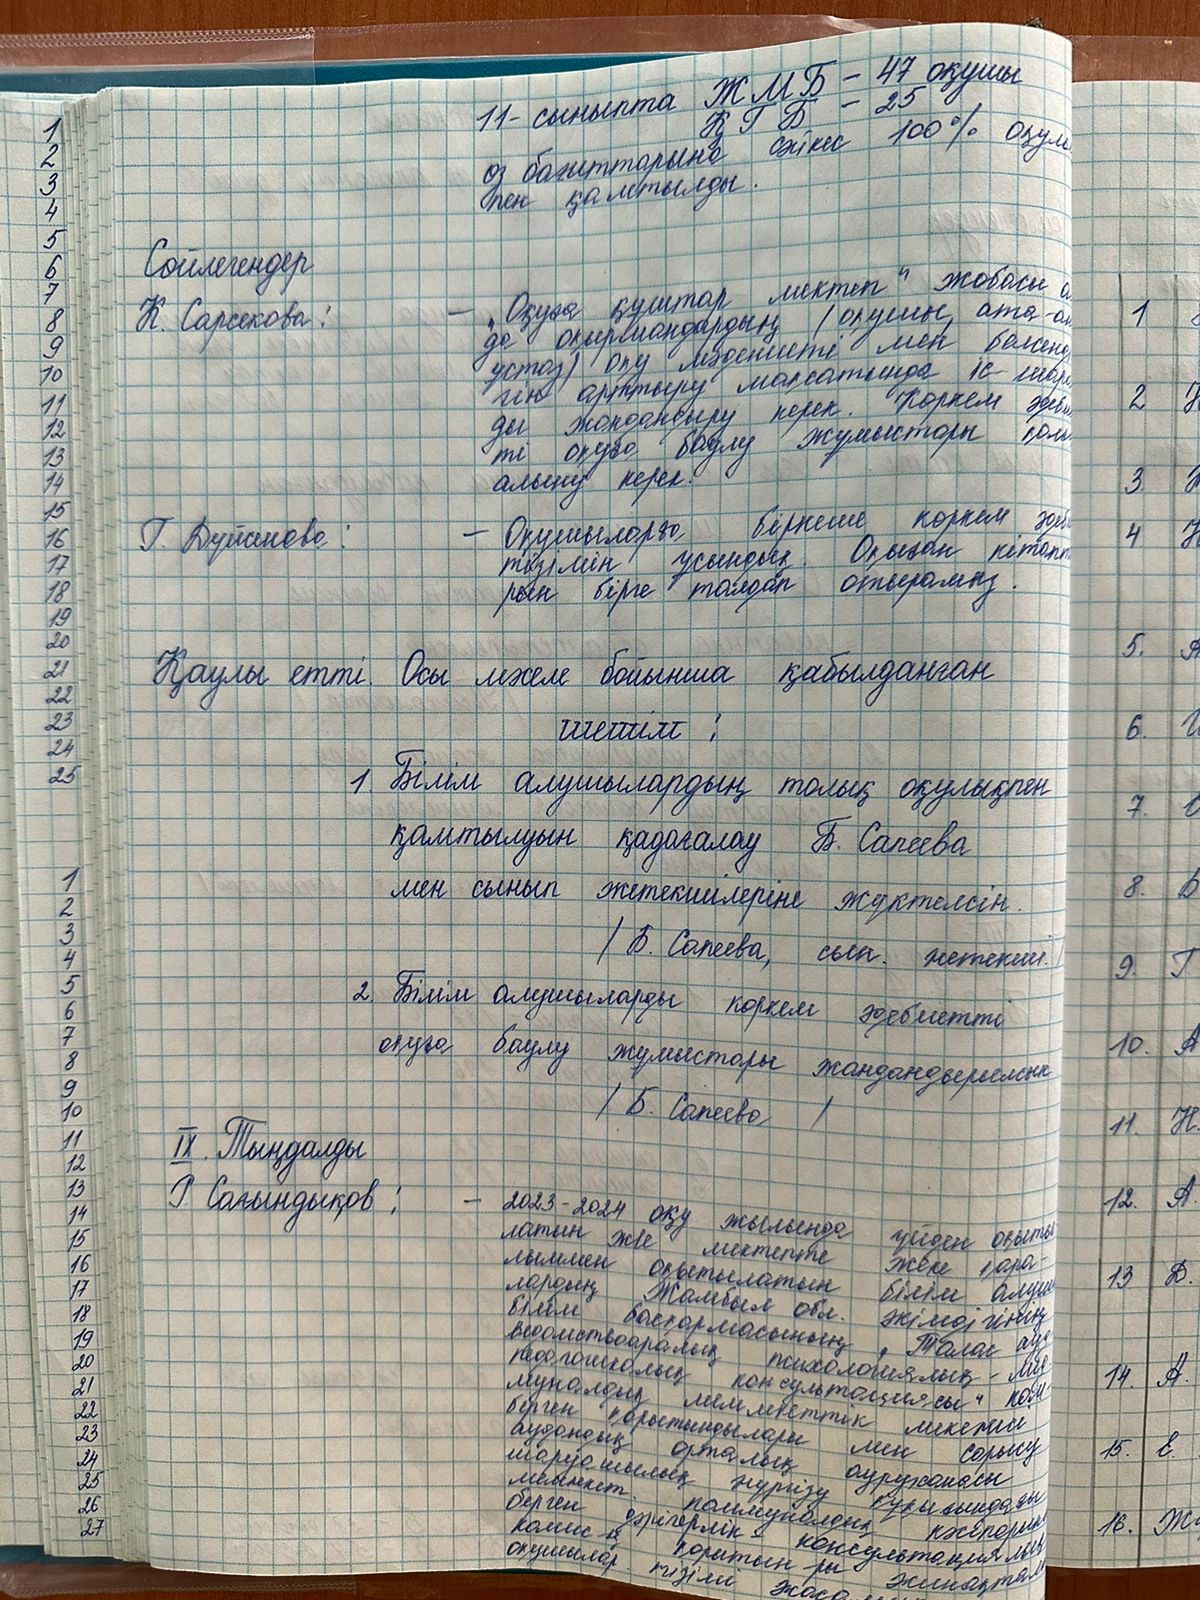 11-сыныпта ЖМБ - 47 оқушы
ҚГБ - 25
өз бағыттарына сәйкес 100% оқулы
пен қамтылды.
Сөйлегендер
К. Сарсекова:
- „Оқуға құштар мектеп" жобасы а
да оқырмандардың /оқушы, ата-ан
ұстаз/ оқу мәдениеті мен белсенд
гін арттыру мақсатында іс-шара
ды жандандыру керек. Көркем әдеби
ті оқуға баулу жұмыстары қолғ
алыну керек.
Г. Дуйсенова:
- Оқушыларға бірнеше көркем әдеби
тізімін ұсындық. Оқыған кітапт
рын бірге талдап отырамыз.
Қаулы етті. Осы мәселе бойынша қабылданған
шешім:
1. Білім алушылардың толық оқулықпен
қамтылуын қадағалау Б. Сапеева
мен сынып жетекшілеріне жүктелсін.
/ Б. Сапеева, сын. жетекші. /
2. Білім алушыларды көркем әдебиетті
оқуға баулу жұмыстары жандандырылсын
/ Б. Сапеева /
IX. Тыңдалды
Р. Сағындықов:
- 2023-2024 оқу жылында үйден оқыты
латын және мектепте жеке қара-
лыммен оқытылатын білім алушы
лардың Жамбыл обл. әкімдігінің
білім басқармасының „Талас ауд
ведомствоаралық психологиялық-мед
педагогикалық консультациясы" ком-
муналдық мемлекеттік мекемесі
берген қорытындылары мен Сарысу
аудандық орталық ауруханасы
шаруашылық жүргізу құқығындағы
мемлекет. коммуналдық кәсіпорын
берген дәрігерлік консультациялық
комис-ң қорытын-ры жинақтал
оқушылар тізімі жасал
1
2
3
4
5
6
7
8
9
10
11
12
13
14
15
16
17
18
19
20
21
22
23
24
25
1
2
3
4
5
6
7
8
9
10
11
12
13
14
15
16
17
18
19
20
21
22
23
24
25
26
27
1
2
3.
4
5. А
6.
7.
8. Б
9. Г
10. А
11. Н.
12. А
13 Д.
14. А.
15. Е.
16. Ж